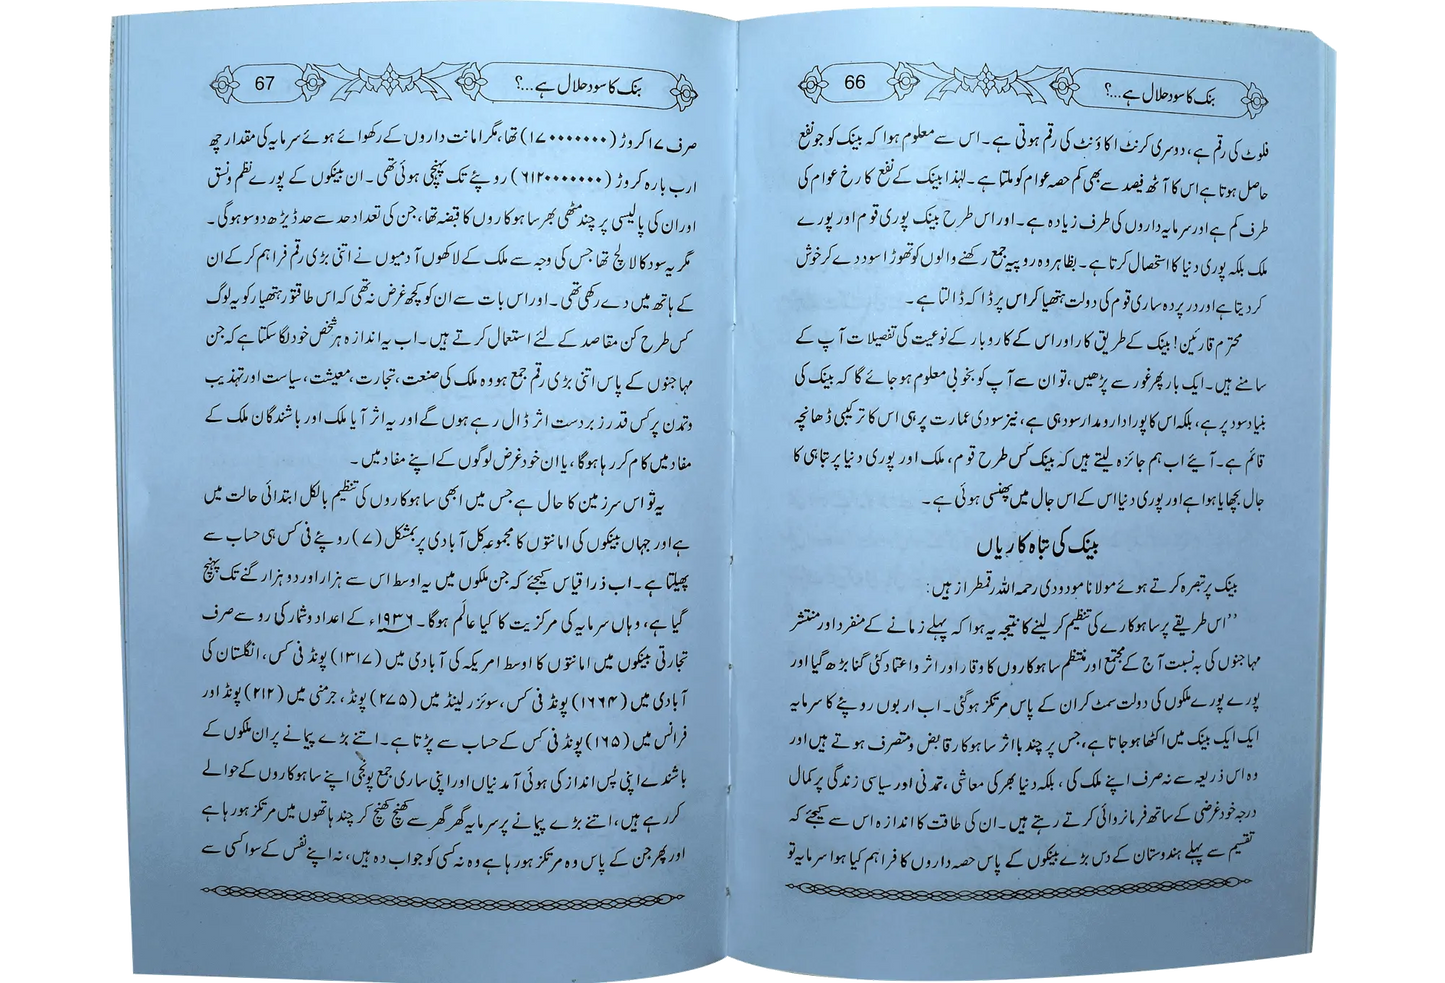 بنک کا سود حلال ہے...؟
66
فلوٹ کی رقم ہے، دوسری کرنٹ اکاؤنٹ کی رقم ہوتی ہے۔ اس سے معلوم ہوا کہ بینک کو جو نفع
حاصل ہوتا ہے اس کا آٹھ فیصد سے بھی کم حصہ عوام کو ملتا ہے۔ لہٰذا بینک کے نفع کا رخ عوام کی
طرف کم ہے اور سرمایہ داروں کی طرف زیادہ ہے۔ اور اس طرح بینک پوری قوم اور پورے
ملک بلکہ پوری دنیا کا استحصال کرتا ہے۔ بظاہر وہ روپیہ جمع رکھنے والوں کو تھوڑا سود دے کر خوش
کر دیتا ہے اور در پردہ ساری قوم کی دولت ہتھیا کر اس پر ڈاکہ ڈالتا ہے۔
محترم قارئین! بینک کے طریق کار اور اس کے کاروبار کے نوعیت کی تفصیلات آپ کے
سامنے ہیں۔ ایک بار پھر غور سے پڑھیں، تو ان سے آپ کو بخوبی معلوم ہو جائے گا کہ بینک کی
بنیاد سود پر ہے، بلکہ اس کا پورا دارومدار سود ہی ہے، نیز سودی عمارت پر ہی اس کا ترکیبی ڈھانچہ
قائم ہے۔ آیئے اب ہم جائزہ لیتے ہیں کہ بینک کس طرح قوم، ملک اور پوری دنیا پر تباہی کا
جال بچھایا ہوا ہے اور پوری دنیا اس کے اس جال میں پھنسی ہوئی ہے۔
بینک کی تباہ کاریاں
بینک پر تبصرہ کرتے ہوئے مولانا مودودی رحمہ اللہ رقمطراز ہیں:
’’اس طریقے پر ساہوکارے کی تنظیم کر لینے کا نتیجہ یہ ہوا کہ پہلے زمانے کے منفرد اور منتشر
مہاجنوں کی بہ نسبت آج کے مجتمع اور منظم ساہوکاروں کا وقار اور اثر و اعتماد کئی گنا بڑھ گیا اور
پورے پورے ملکوں کی دولت سمٹ کر ان کے پاس مرتکز ہوگئی۔ اب اربوں روپئے کا سرمایہ
ایک ایک بینک میں اکٹھا ہو جاتا ہے، جس پر چند بااثر ساہوکار قابض و متصرف ہوتے ہیں اور
وہ اس ذریعہ سے نہ صرف اپنے ملک کی، بلکہ دنیا بھر کی معاشی، تمدنی اور سیاسی زندگی پر کمال
درجہ خود غرضی کے ساتھ فرمانروائی کرتے رہتے ہیں۔ ان کی طاقت کا اندازہ اس سے کیجئے کہ
تقسیم سے پہلے ہندوستان کے دس بڑے بینکوں کے پاس حصہ داروں کا فراہم کیا ہوا سرمایہ تو
بنک کا سود حلال ہے...؟
67
صرف ۱۷ کروڑ (۱۷۰۰۰۰۰۰۰) تھا، مگر امانت داروں کے رکھوائے ہوئے سرمایہ کی مقدار چھ
ارب بارہ کروڑ (۶۱۲۰۰۰۰۰۰۰) روپئے تک پہنچی ہوئی تھی۔ ان بینکوں کے پورے نظم و نسق
اور ان کی پالیسی پر چند مٹھی بھر ساہوکاروں کا قبضہ تھا، جن کی تعداد حد سے حد ڈیڑھ دو سو ہوگی۔
مگر یہ سود کا لالچ تھا جس کی وجہ سے ملک کے لاکھوں آدمیوں نے اتنی بڑی رقم فراہم کر کے ان
کے ہاتھ میں دے رکھی تھی۔ اور اس بات سے ان کو کچھ غرض نہ تھی کہ اس طاقتور ہتھیار کو یہ لوگ
کس طرح کن مقاصد کے لئے استعمال کرتے ہیں۔ اب یہ اندازہ ہر شخص خود لگا سکتا ہے کہ جن
مہاجنوں کے پاس اتنی بڑی رقم جمع ہو وہ ملک کی صنعت، تجارت، معیشت، سیاست اور تہذیب
و تمدن پر کس قدر زبردست اثر ڈال رہے ہوں گے اور یہ اثر آیا ملک اور باشندگان ملک کے
مفاد میں کام کر رہا ہوگا، یا ان خود غرض لوگوں کے اپنے مفاد میں۔
یہ تو اس سرزمین کا حال ہے جس میں ابھی ساہوکاروں کی تنظیم بالکل ابتدائی حالت میں
ہے اور جہاں بینکوں کی امانتوں کا مجموعہ کل آبادی پر بمشکل (۷) روپئے فی کس ہی حساب سے
پھیلتا ہے۔ اب ذرا قیاس کیجئے کہ جن ملکوں میں یہ اوسط اس سے ہزار اور دو ہزار گنے تک پہنچ
گیا ہے، وہاں سرمایہ کی مرکزیت کا کیا عالَم ہوگا۔ ۱۹۳۶ء کے اعداد و شمار کی رو سے صرف
تجارتی بینکوں میں امانتوں کا اوسط امریکہ کی آبادی میں (۱۳۱۷) پونڈ فی کس، انگلستان کی
آبادی میں (۱۶۶۴) پونڈ فی کس، سوئزرلینڈ میں (۲۷۵) پونڈ، جرمنی میں (۲۱۲) پونڈ اور
فرانس میں (۱۶۵) پونڈ فی کس کے حساب سے پڑتا ہے۔ اتنے بڑے پیمانے پر ان ملکوں کے
باشندے اپنی پس انداز کی ہوئی آمدنیاں اور اپنی ساری جمع پونجی اپنے ساہوکاروں کے حوالے
کر رہے ہیں، اتنے بڑے پیمانے پر سرمایہ گھر گھر سے کھنچ کھنچ کر چند ہاتھوں میں مرتکز ہو رہا ہے
اور پھر جن کے پاس وہ مرتکز ہو رہا ہے وہ نہ کسی کو جواب دہ ہیں، نہ اپنے نفس کے سوا کسی سے